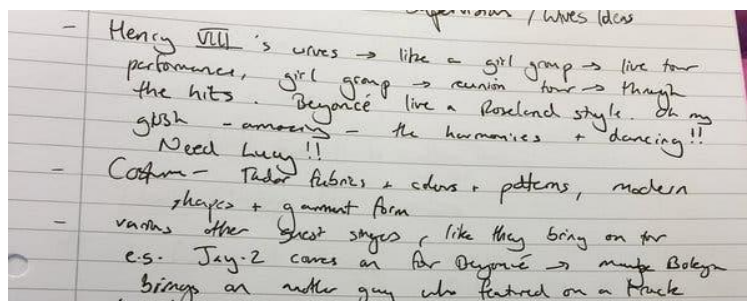 / Wives Ideas
- Henry VIII's wives → like a girl group → live tour
performance, girl group → reunion tour → through
the hits. Beyoncé live a Roseland style. Oh my
gosh - amazing - the harmonies + dancing!!
Need Lucy!!
- Costume - Tudor fabrics + colours + patterns, modern
shapes + garment form
- various other guest singers, like they bring on for
e.g. Jay-Z comes on for Beyoncé → maybe Boleyn
brings on another guy who featured on a track